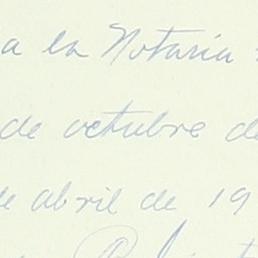 a la Notaria
de octubre de
de abril de 19